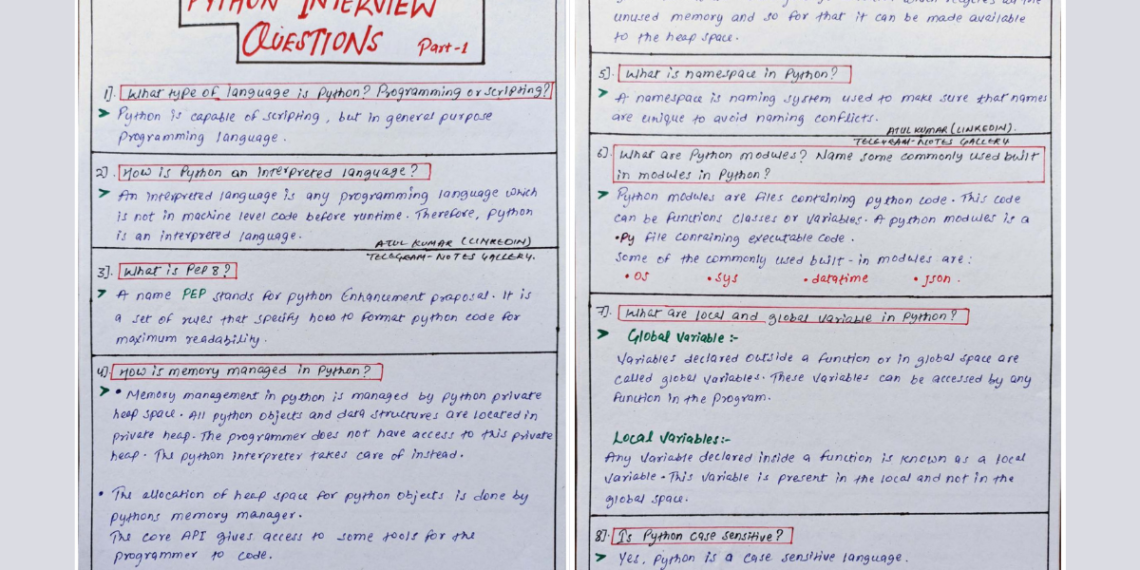 PYTHON INTERVIEW
QUESTIONS Part-1
1). What type of language is Python? Programming or scripting?
➤ Python is capable of scripting, but in general purpose
Programming language.
2). How is Python an interpreted language?
➤ An interpreted language is any programming language which
is not in machine level code before runtime. Therefore, python
is an interpreted language.
ATUL KUMAR (LINKEDIN)
TELEGRAM-NOTES GALLERY.
3). What is Pep 8?
➤ A name PEP stands for python Enhancement proposal. It is
a set of rules that specify how to format python code for
maximum readability.
4). How is memory managed in Python?
➤ • Memory management in python is managed by python private
heap space. All python objects and data structures are located in
private heap. The programmer does not have access to this private
heap. The python interpreter takes care of instead.
• The allocation of heap space for python objects is done by
pythons memory manager.
The core API gives access to some tools for the
programmer to code.
unused memory and so for that it can be made available
to the heap space.
5). What is namespace in Python?
➤ A namespace is naming system used to make sure that names
are unique to avoid naming conflicts.
ATUL KUMAR (LINKEDIN).
TELEGRAM-NOTES GALLERY
6). What are Python modules? Name some commonly used built
in modules in Python?
➤ Python modules are files containing python code. This code
can be functions classes or variables. A python modules is a
.Py file containing executable code.
Some of the commonly used built-in modules are:
• os • sys • datatime • json.
7). What are local and global variable in Python?
➤ Global Variable :-
Variables declared outside a function or in global space are
called global variables. These variables can be accessed by any
function in the program.
Local Variables:-
Any variable declared inside a function is known as a local
variable. This variable is present in the local and not in the
global space.
8). Is Python case sensitive?
➤ Yes, python is a case sensitive language.